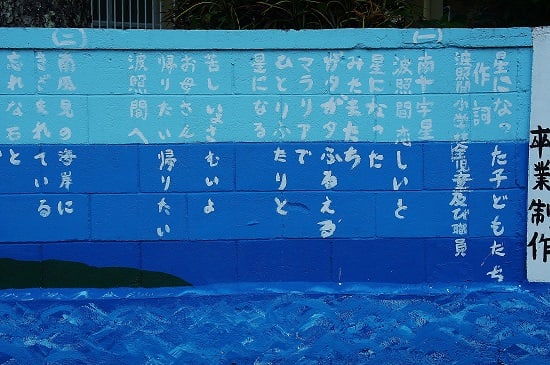 卒業制作
星になった子どもたち
作詞
波照間小学校全児童及び職員
(一)
南十字星
波照間恋しいと
星になった
みたまたち
ガタガタふるえる
マラリアで
ひとりふたりと
星になる
苦しいさむいよ
お母さん
帰りたい帰りたい
波照間へ
(二)
南風見の海岸に
きざまれている
忘れな石と